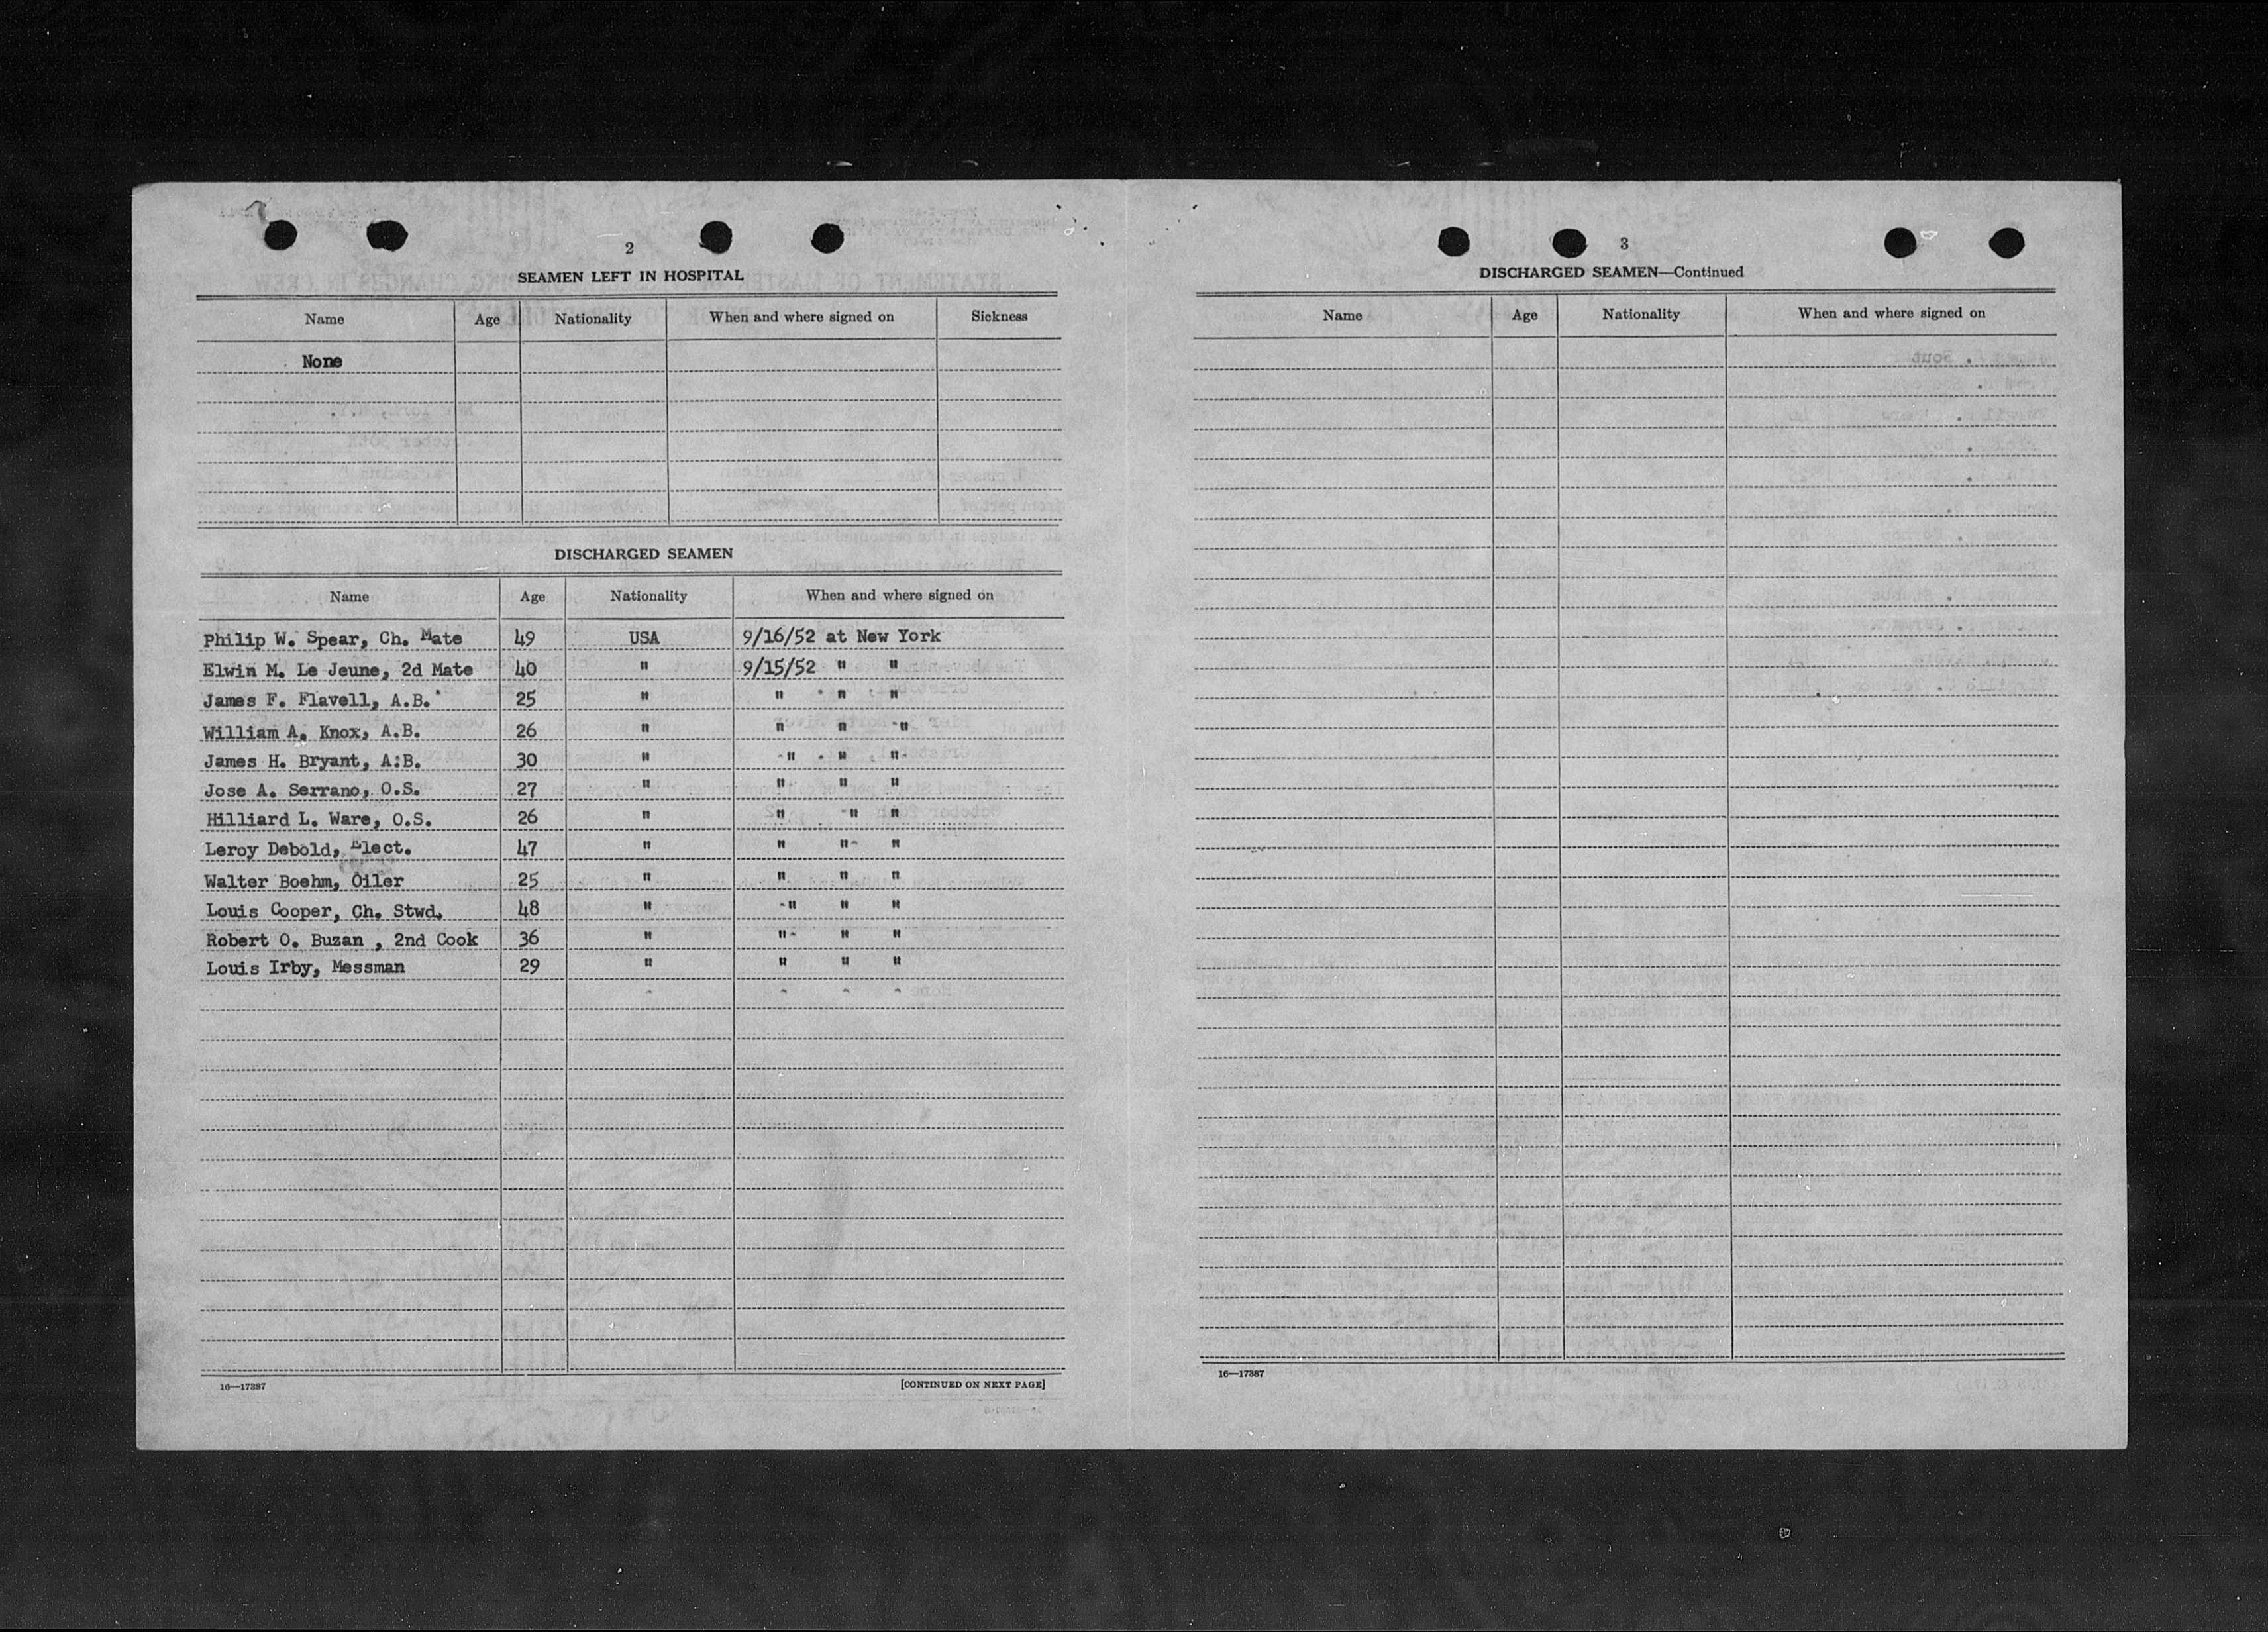 2
SEAMEN LEFT IN HOSPITAL
Name Age Nationality When and where signed on Sickness
None
DISCHARGED SEAMEN
Name Age Nationality When and where signed on
Philip W. Spear, Ch. Mate 49 USA 9/16/52 at New York
Elwin M. Le Jeune, 2d Mate 40 " 9/15/52 " "
James F. Flavell, A.B. 25 " " " "
William A. Knox, A.B. 26 " " " "
James H. Bryant, A.B. 30 " " " "
Jose A. Serrano, O.S. 27 " " " "
Hilliard L. Ware, O.S. 26 " " " "
Leroy Debold, Elect. 47 " " " "
Walter Boehm, Oiler 25 " " " "
Louis Cooper, Ch. Stwd. 48 " " " "
Robert O. Buzan , 2nd Cook 36 " " " "
Louis Irby, Messman 29 " " " "
16—17387 [CONTINUED ON NEXT PAGE]
3
DISCHARGED SEAMEN—Continued
Name Age Nationality When and where signed on
16—17387